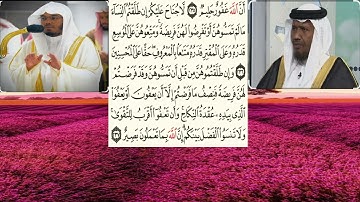 أَنَّ ٱللَّهَ غَفُورٌ حَلِيمٌ ٢٣٥ لَّا جُنَاحَ عَلَيْكُمْ إِن طَلَّقْتُمُ ٱلنِّسَآءَ
مَا لَمْ تَمَسُّوهُنَّ أَوْ تَفْرِضُوا۟ لَهُنَّ فَرِيضَةً وَمَتِّعُوهُنَّ عَلَى ٱلْمُوسِعِ
قَدَرُهُۥ وَعَلَى ٱلْمُقْتِرِ قَدَرُهُۥ مَتَٰعًۢا بِٱلْمَعْرُوفِ حَقًّا عَلَى ٱلْمُحْسِنِينَ
٢٣٦ وَإِن طَلَّقْتُمُوهُنَّ مِن قَبْلِ أَن تَمَسُّوهُنَّ وَقَدْ فَرَضْتُمْ
لَهُنَّ فَرِيضَةً فَنِصْفُ مَا فَرَضْتُمْ إِلَّآ أَن يَعْفُونَ أَوْ يَعْفُوَا۟
ٱلَّذِى بِيَدِهِۦ عُقْدَةُ ٱلنِّكَاحِ وَأَن تَعْفُوٓا۟ أَقْرَبُ لِلتَّقْوَىٰ
وَلَا تَنسَوُا۟ ٱلْفَضْلَ بَيْنَكُمْ إِنَّ ٱللَّهَ بِمَا تَعْمَلُونَ بَصِيرٌ ٢٣٧